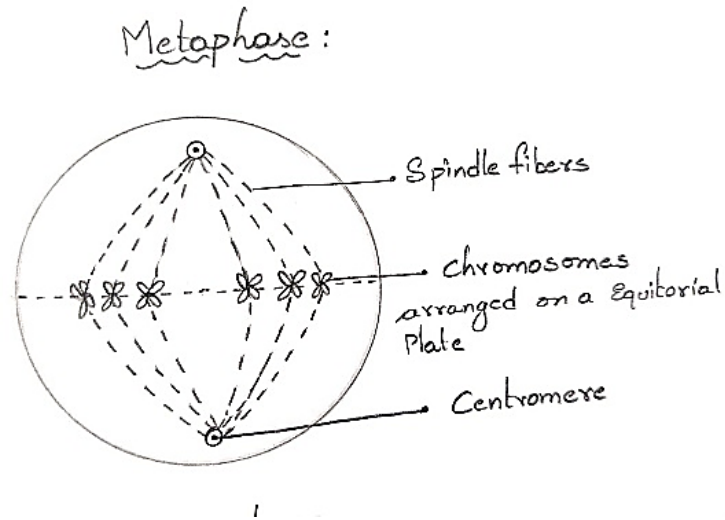 Metaphase:
Spindle fibers
Chromosomes
arranged on a Equitorial
Plate
Centromere